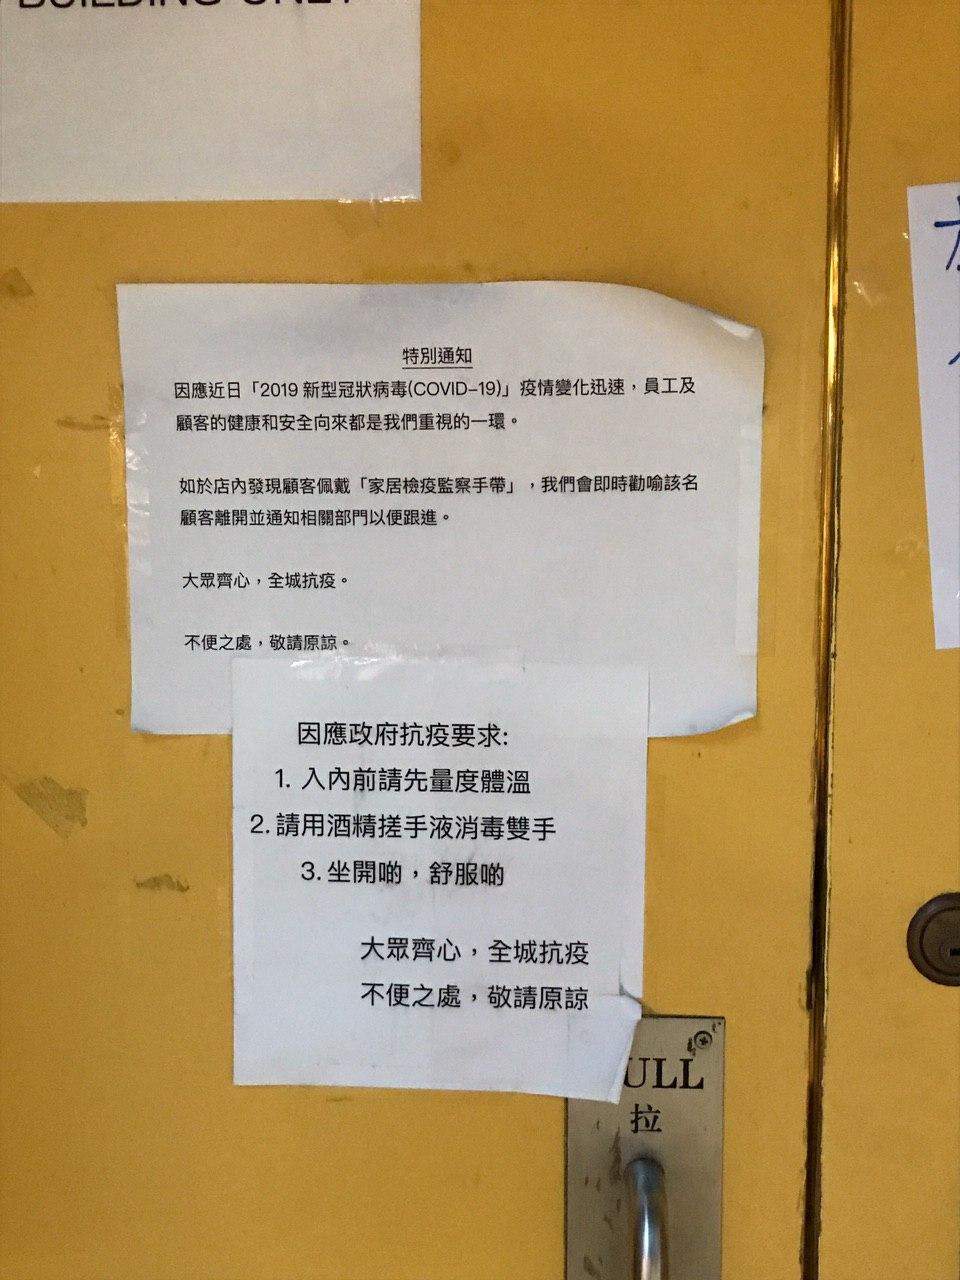 BUILDING UNIT
特別通知
因應近日「2019 新型冠狀病毒(COVID-19)」疫情變化迅速，員工及
顧客的健康和安全向來都是我們重視的一環。
如於店內發現顧客佩戴「家居檢疫監察手帶」，我們會即時勸喻該名
顧客離開並通知相關部門以便跟進。
大眾齊心，全城抗疫。
不便之處，敬請原諒。
因應政府抗疫要求:
1. 入內前請先量度體溫
2. 請用酒精搓手液消毒雙手
3. 坐開啲，舒服啲
大眾齊心，全城抗疫
不便之處，敬請原諒
ULL
拉